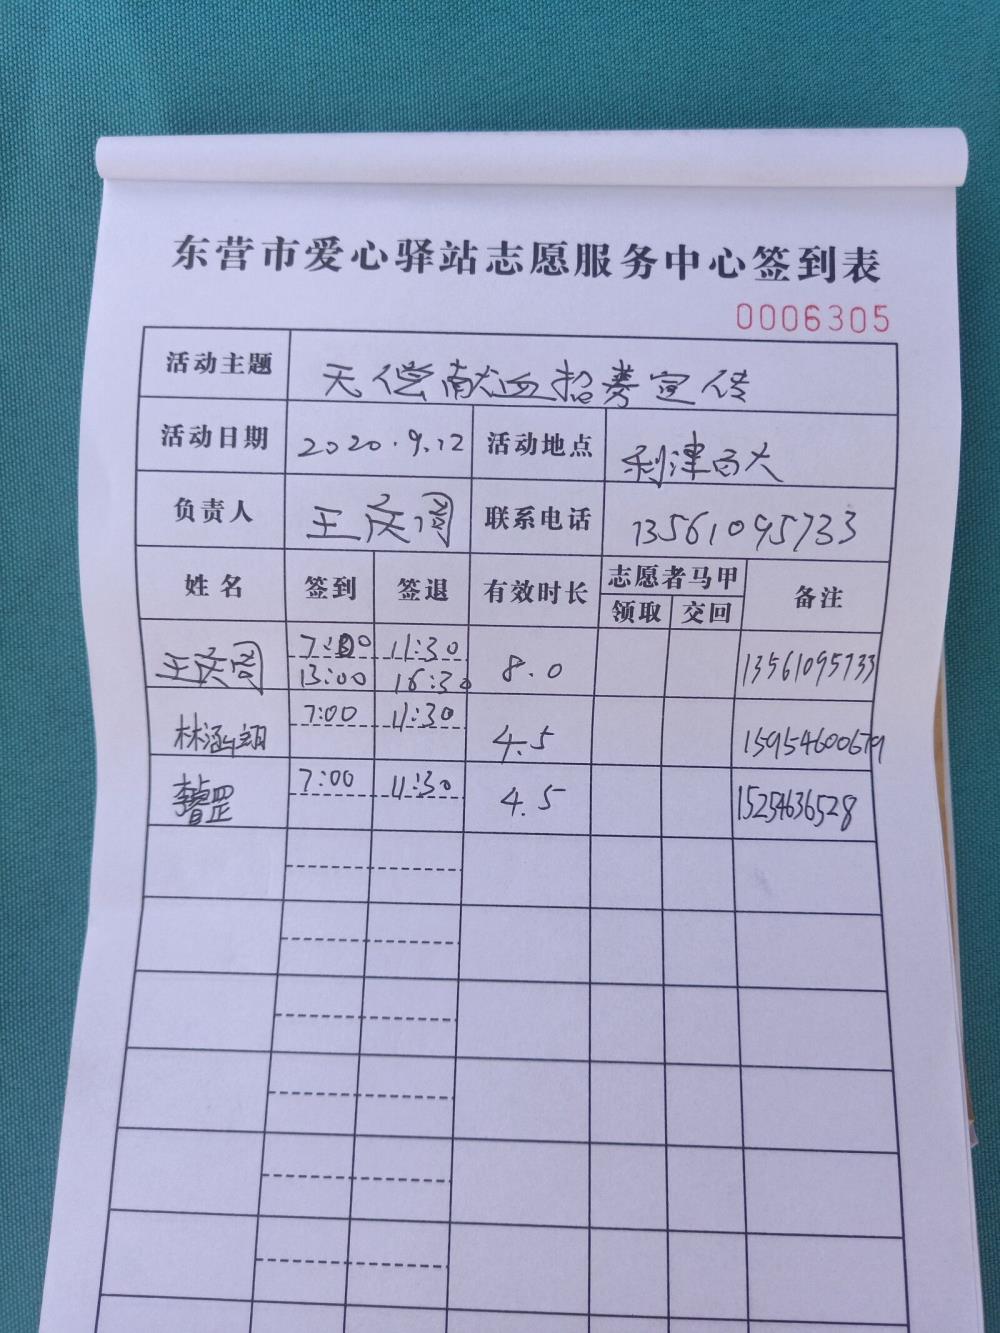 东营市爱心驿站志愿服务中心签到表
0006305
活动主题 无偿献血招募宣传
活动日期 2020.9.12 活动地点 利津百大
负责人 王庆阁 联系电话 13561095733
姓名 签到 签退 有效时长 志愿者马甲 备注
领取 交回
王庆阁 7:00 11:30 8.0 13561095733
13:00 16:30
林涵翊 7:00 11:30 4.5 15954600679
李睿罡 7:00 11:30 4.5 15254636528